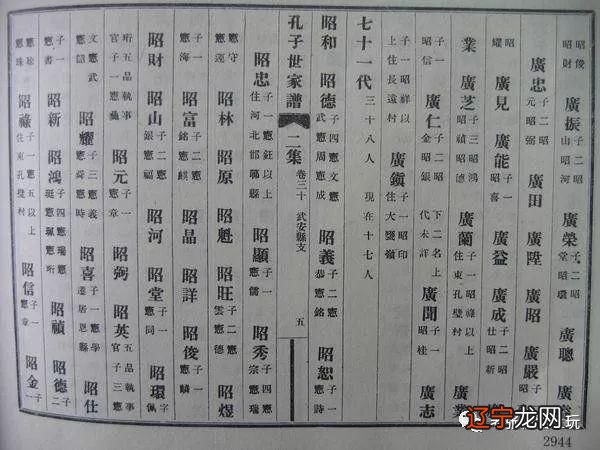 昭俊昭財 廣振 子二昭山昭河 廣榮 子二昭堂昭環 廣聰 廣
廣忠 子二昭元昭弼 廣田 廣陞 廣昭 廣嚴 子
昭耀 廣見 廣能 子一昭喜 廣益 廣成 子二昭仕昭新
業 廣芝 子三昭鴻昭禎昭德 廣蘭 子一昭祿以上住東孔壁村 廣業
子一昭信 廣仁 子二昭金昭銀 下二名上代未詳 廣聞 子一昭桂 廣志
子一昭祥以上住長遠村 廣鎮 子一昭印住大嶺
七十一代 三十八人 現在十七人
昭和 昭德 子四憲文憲武憲周憲成 昭義 子二憲恭憲銘 昭恕 子一憲詩
孔子世家譜 二集 卷三十 武安縣支 五
昭忠 子一憲鈺以上住河北邯鄲縣 昭顯 子一憲儒 昭秀 子二憲宗憲瑞
憲守憲蓬 昭林 昭原 昭魁 昭旺 子二憲雲憲德 昭煜
子一憲海 昭富 子二憲銘憲麒 昭晶 昭詳 昭俊 子一憲麟
昭財 昭山 子二憲銀憲福 昭河 昭堂 子一憲同 昭環 字佩
珩五品執事官子一憲 昭元 子一憲章 昭弼 昭英 五品執事官子三憲
文憲武憲韶 昭耀 子三憲義憲舜憲時 昭喜 子一憲學遷居恩縣 昭仕
子一憲書 昭新 昭鴻 子四憲瑞憲珽憲珮憲珩 昭禎 昭德 子二
憲珍憲珠 昭祿 子一憲五以上住東孔壁村 昭信 子一憲章 昭金 子一
辽宁龙网
2944